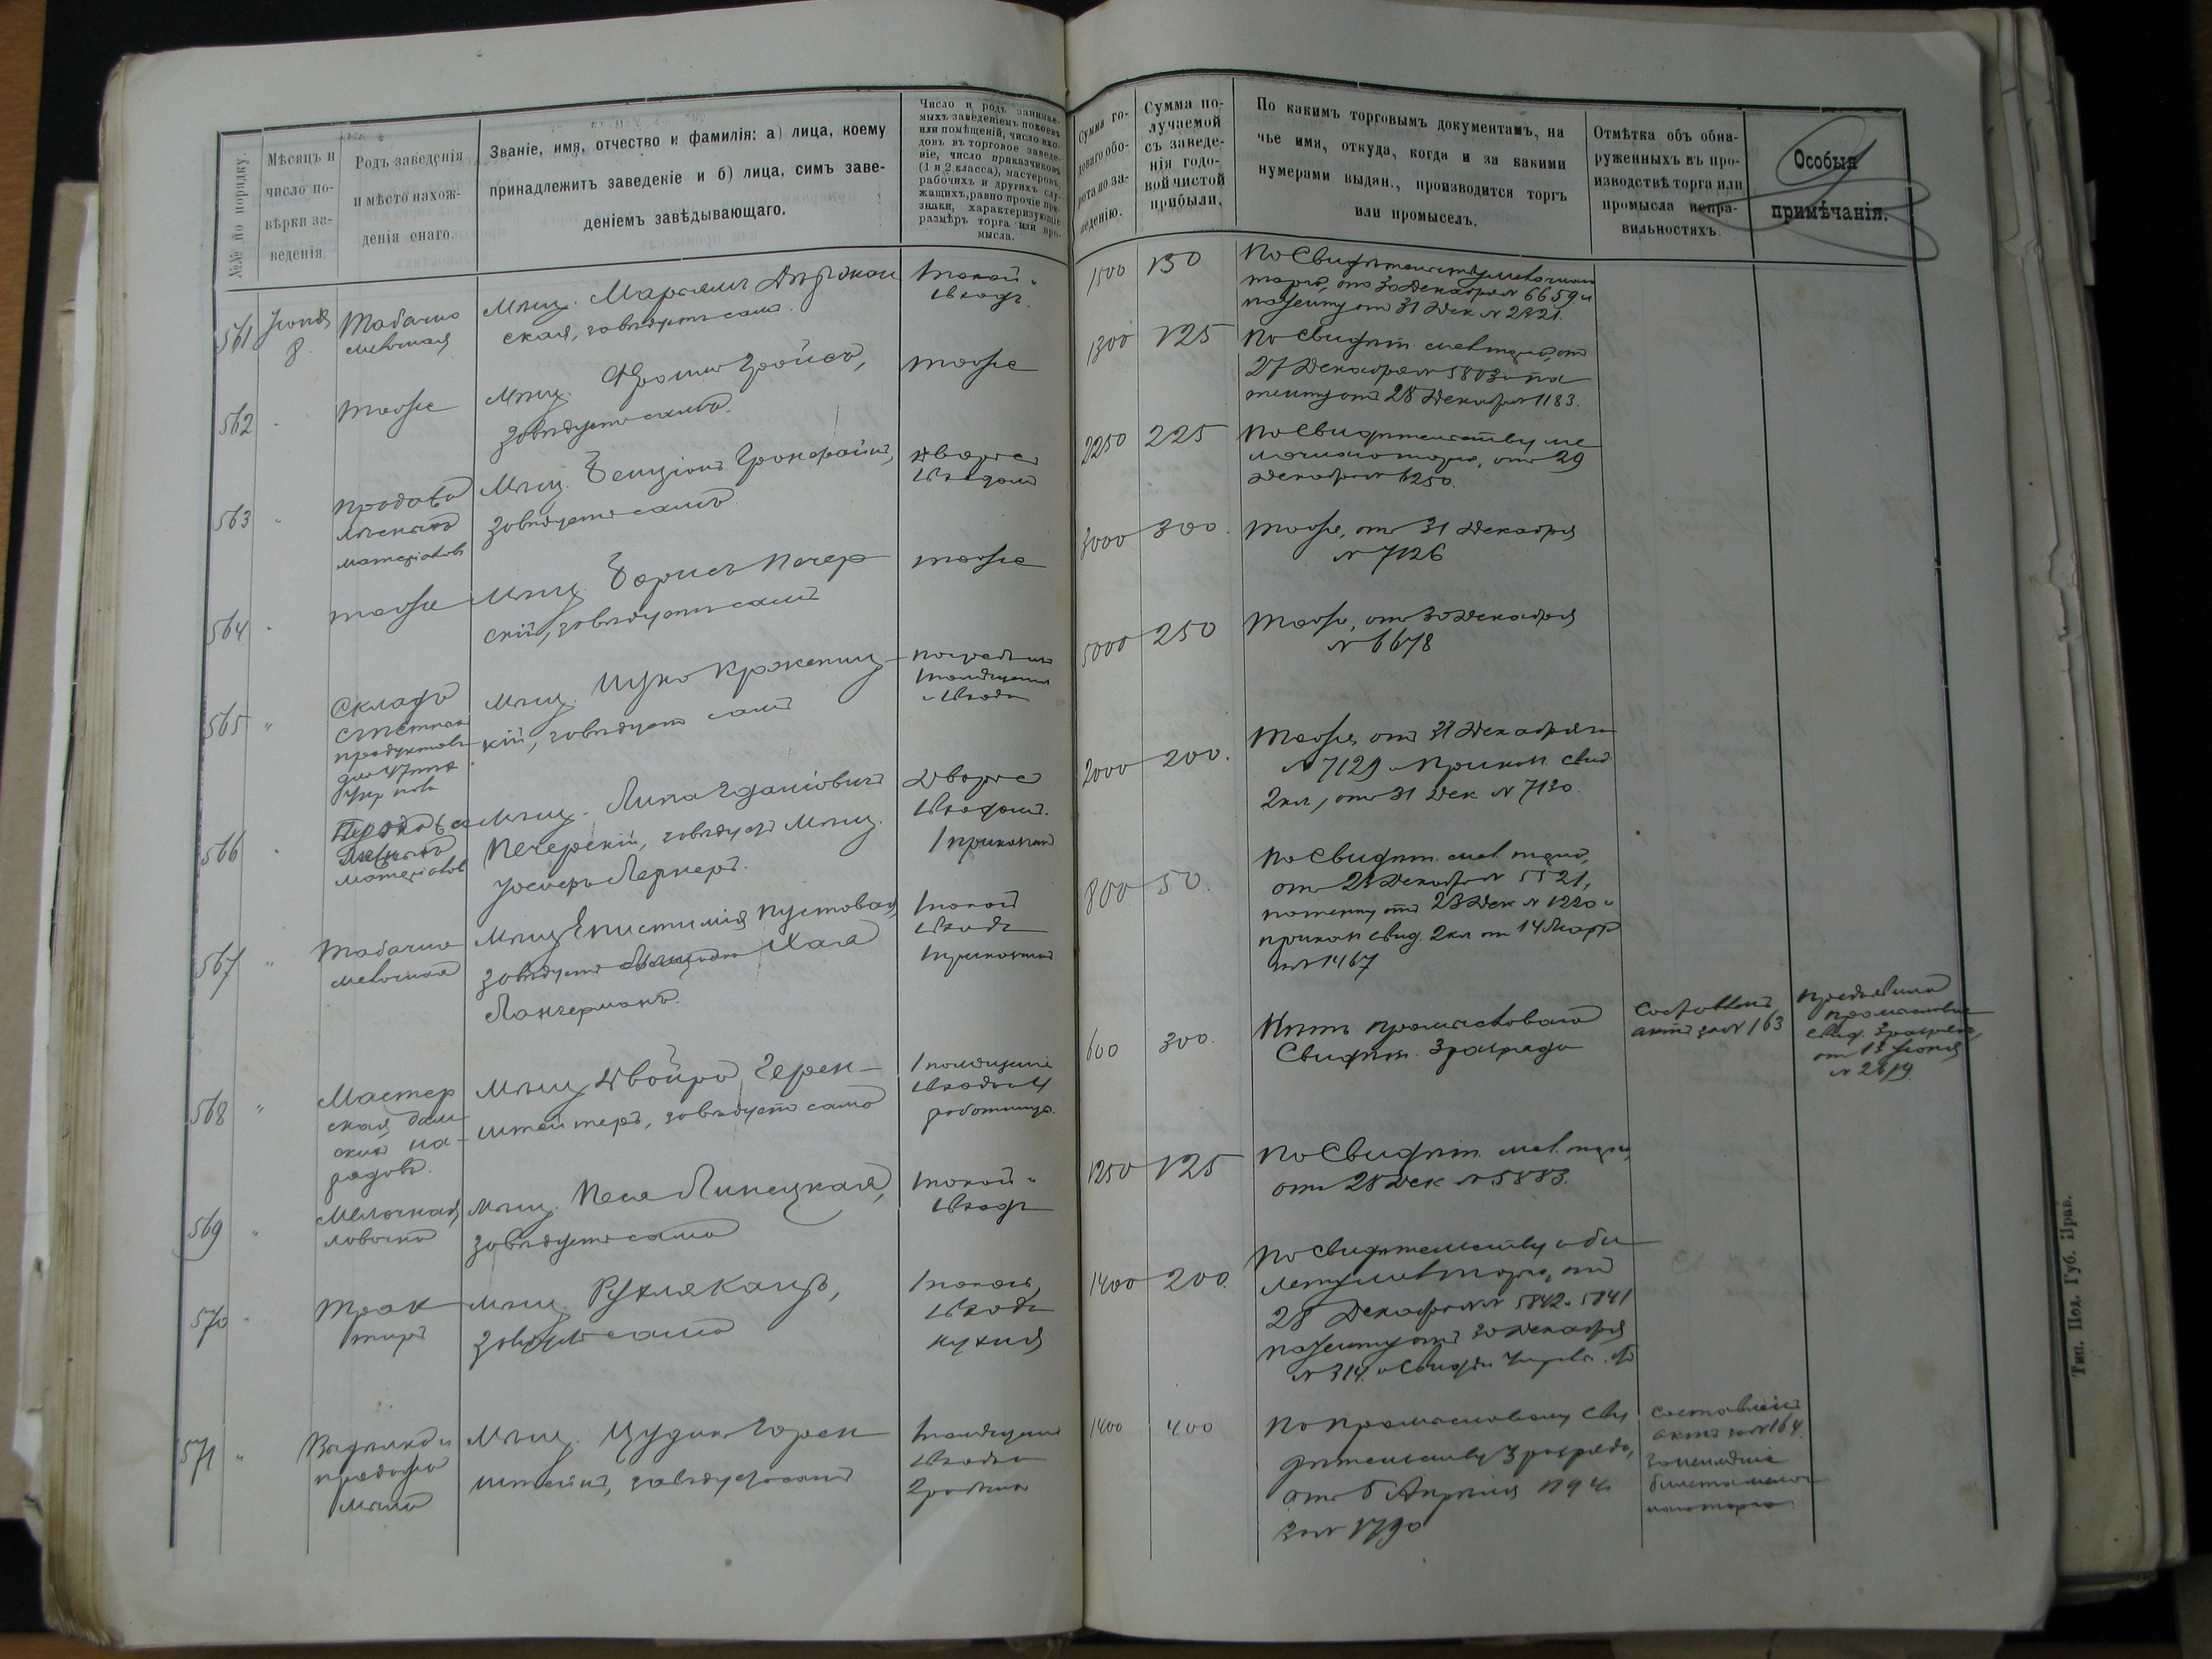 №№ по порядку.
Мѣсяцъ и
число по-
вѣрки за-
веденія
Родъ заведенія
и мѣсто нахож-
денія онаго.
Званіе, имя, отчество и фамилія: а) лица, коему
принадлежитъ заведеніе и б) лица, симъ заве-
деніемъ завѣдывающаго.
Число и родъ занимае-
мыхъ заведеніемъ покоевъ
или помѣщеній, число вхо-
довъ въ торговое заведе-
ніе, число приказчиковъ
(1 и 2 класса), мастеровъ,
рабочихъ и другихъ слу-
жащихъ, равно прочіе при-
знаки, характеризующіе
размѣръ торга или про-
мысла.
Сумма го-
доваго обо-
рота по за-
веденію.
Сумма по-
лучаемой
съ заведе-
нія годо-
вой чистой
прибыли.
По какимъ торговымъ документамъ, на
чье имя, откуда, когда и за какими
нумерами выдан., производится торгъ
или промыселъ.
Отмѣтка объ обна-
руженныхъ въ про-
изводствѣ торга или
промысла непра-
вильностяхъ
Особыя
примѣчанія.
561
Іюня
8.
Табачно
мелочная
Мѣщ. Марьямъ
ская, завѣдуетъ сама.
1 покой
1 входъ
1500
150
По Свидѣтельству мелочнаго
торга, отъ 30 Декабря № 6659 и
патенту отъ 31 Дек № 2821.
562
тоже
Мѣщ. Фроим Гройсъ,
завѣдуетъ самъ.
тоже
1300
125
По Свидѣт. мел торга, отъ
27 Декабря № 5803 и па
тенту отъ 28 Декабря № 1183.
563
Продажа
лѣсныхъ
матеріаловъ
Мѣщ. Бенціонъ
завѣдуетъ самъ
Дворъ съ
1 входомъ
2250
225
По Свидѣтельству ме
лочнаго торга, отъ 29
Декабря № 6250.
564
тоже
Мѣщ. Борисъ Печер
скій, завѣдуетъ самъ
тоже
3000
300.
Тоже, отъ 31 Декабря
№ 7126
565
Складъ
съѣстныхъ
продуктовъ
для 47 пѣх
Укр полк
Мѣщ. Ицко
кій, завѣдуетъ самъ
погребъ
1 помѣщеніе
и 1 входъ
5000
250
Тоже, отъ 30 Декабря
№ 6678
566
Продажа
лѣсныхъ
матеріаловъ
Мѣщ. Липа
Печерскій, завѣдуетъ Мѣщ.
Лернеръ.
Дворъ съ
1 входомъ.
1 приказчикъ
2000
200.
Тоже, отъ 31 Декабря
№ 7129 и Приказ. свид
2 кл, отъ 31 Дек № 7130.
567
Табачно
мелочная
Мѣщ Епистимія Пустовая
завѣдуетъ Мѣщ
Лангерманъ.
1 покой
1 входъ
1 приказчикъ
800
50.
По Свидѣт. мел. торга,
отъ 28 Декабря № 5521,
патенту отъ 28 Дек № 1220 и
приказ свид. 2 кл от 14 Марта
за № 1467
568
Мастер
ская дам
скихъ на-
рядовъ.
Мѣщ Двойра Герен-
штейнеръ, завѣдуетъ сама
1 помѣщеніе
1 входъ и 4
работницы.
600
300.
Нѣтъ промысловаго
Свидѣт. 3 разряда
Составленъ
актъ за № 163
Предъявила
промыслов
свид. 3 разряда,
от 13 Іюня
№ 2619.
569
Мелочная
лавочка
Мѣщ. Песя Липецкая,
завѣдуетъ сама
1 покой
1 входъ
1250
125
По Свидѣт. мел. торга,
отъ 28 Дек № 5883.
570
Трак
тиръ
Мѣщ. Рухля Кацъ,
завѣдуетъ сама
1 покой,
1 входъ
кухня
1400
200.
По Свидѣтельству и би
лету мел торга, отъ
28 Декабря №№ 5842 и 5841
патенту отъ 30 Декабря
571
Выдѣлка и
продажа
мыла
Мѣщ. Горен
штейнъ, завѣдуетъ самъ
1 помѣщеніе
1 входъ и
2 рабочихъ
1400
400
По Промысловому Сви
дѣтельству 3 разряда,
отъ 5 Апрѣля 1894 г.
за № 1790
Составленъ
актъ за № 164
за неимѣніе
билета мелоч
наго торга
Тип. Под. Губ. Прав.